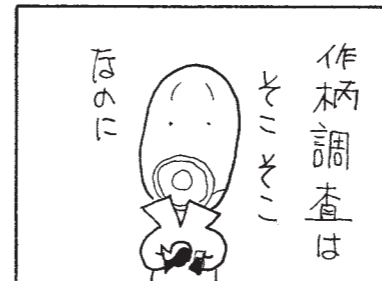 作柄調査は
そこそこ
なのに